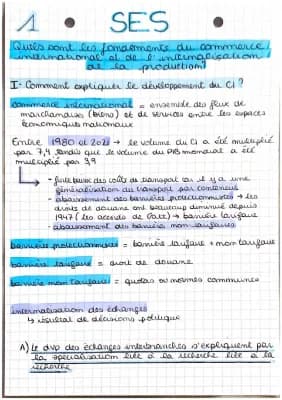 1 SES
Quels sont les fondements du commerce
international et de l'internationalisation
de la production?
I- Comment expliquer le développement du CI ?
commerce international = ensemble des flux de
marchandises (biens) et de services entre les espaces
économiques nationaux
Entre 1980 et 2021 → le volume du CI a été multiplié
par 7,4 tandis que le volume du PIB mondial a été
multiplié par 3,9
- forte baisse des coûts de transport car il y a une
généralisation du transport par conteneur
- abaissement des barrières protectionnistes → les
droits de douane ont beaucoup diminué depuis
1947 (les accords de Gatt) → barrière tarifaire
- abaissement des barrières non tarifaires
barrière protectionniste = barrière tarifaire + non tarifaire
barrière tarifaire = droit de douane
barrière non tarifaire = quotas ou normes communes
internationalisation des échanges
↳ résultat de décisions politique
A) Le dvp des échanges interbranches s'expliquent par
la spécialisation liée à la recherche liée à la
recherche